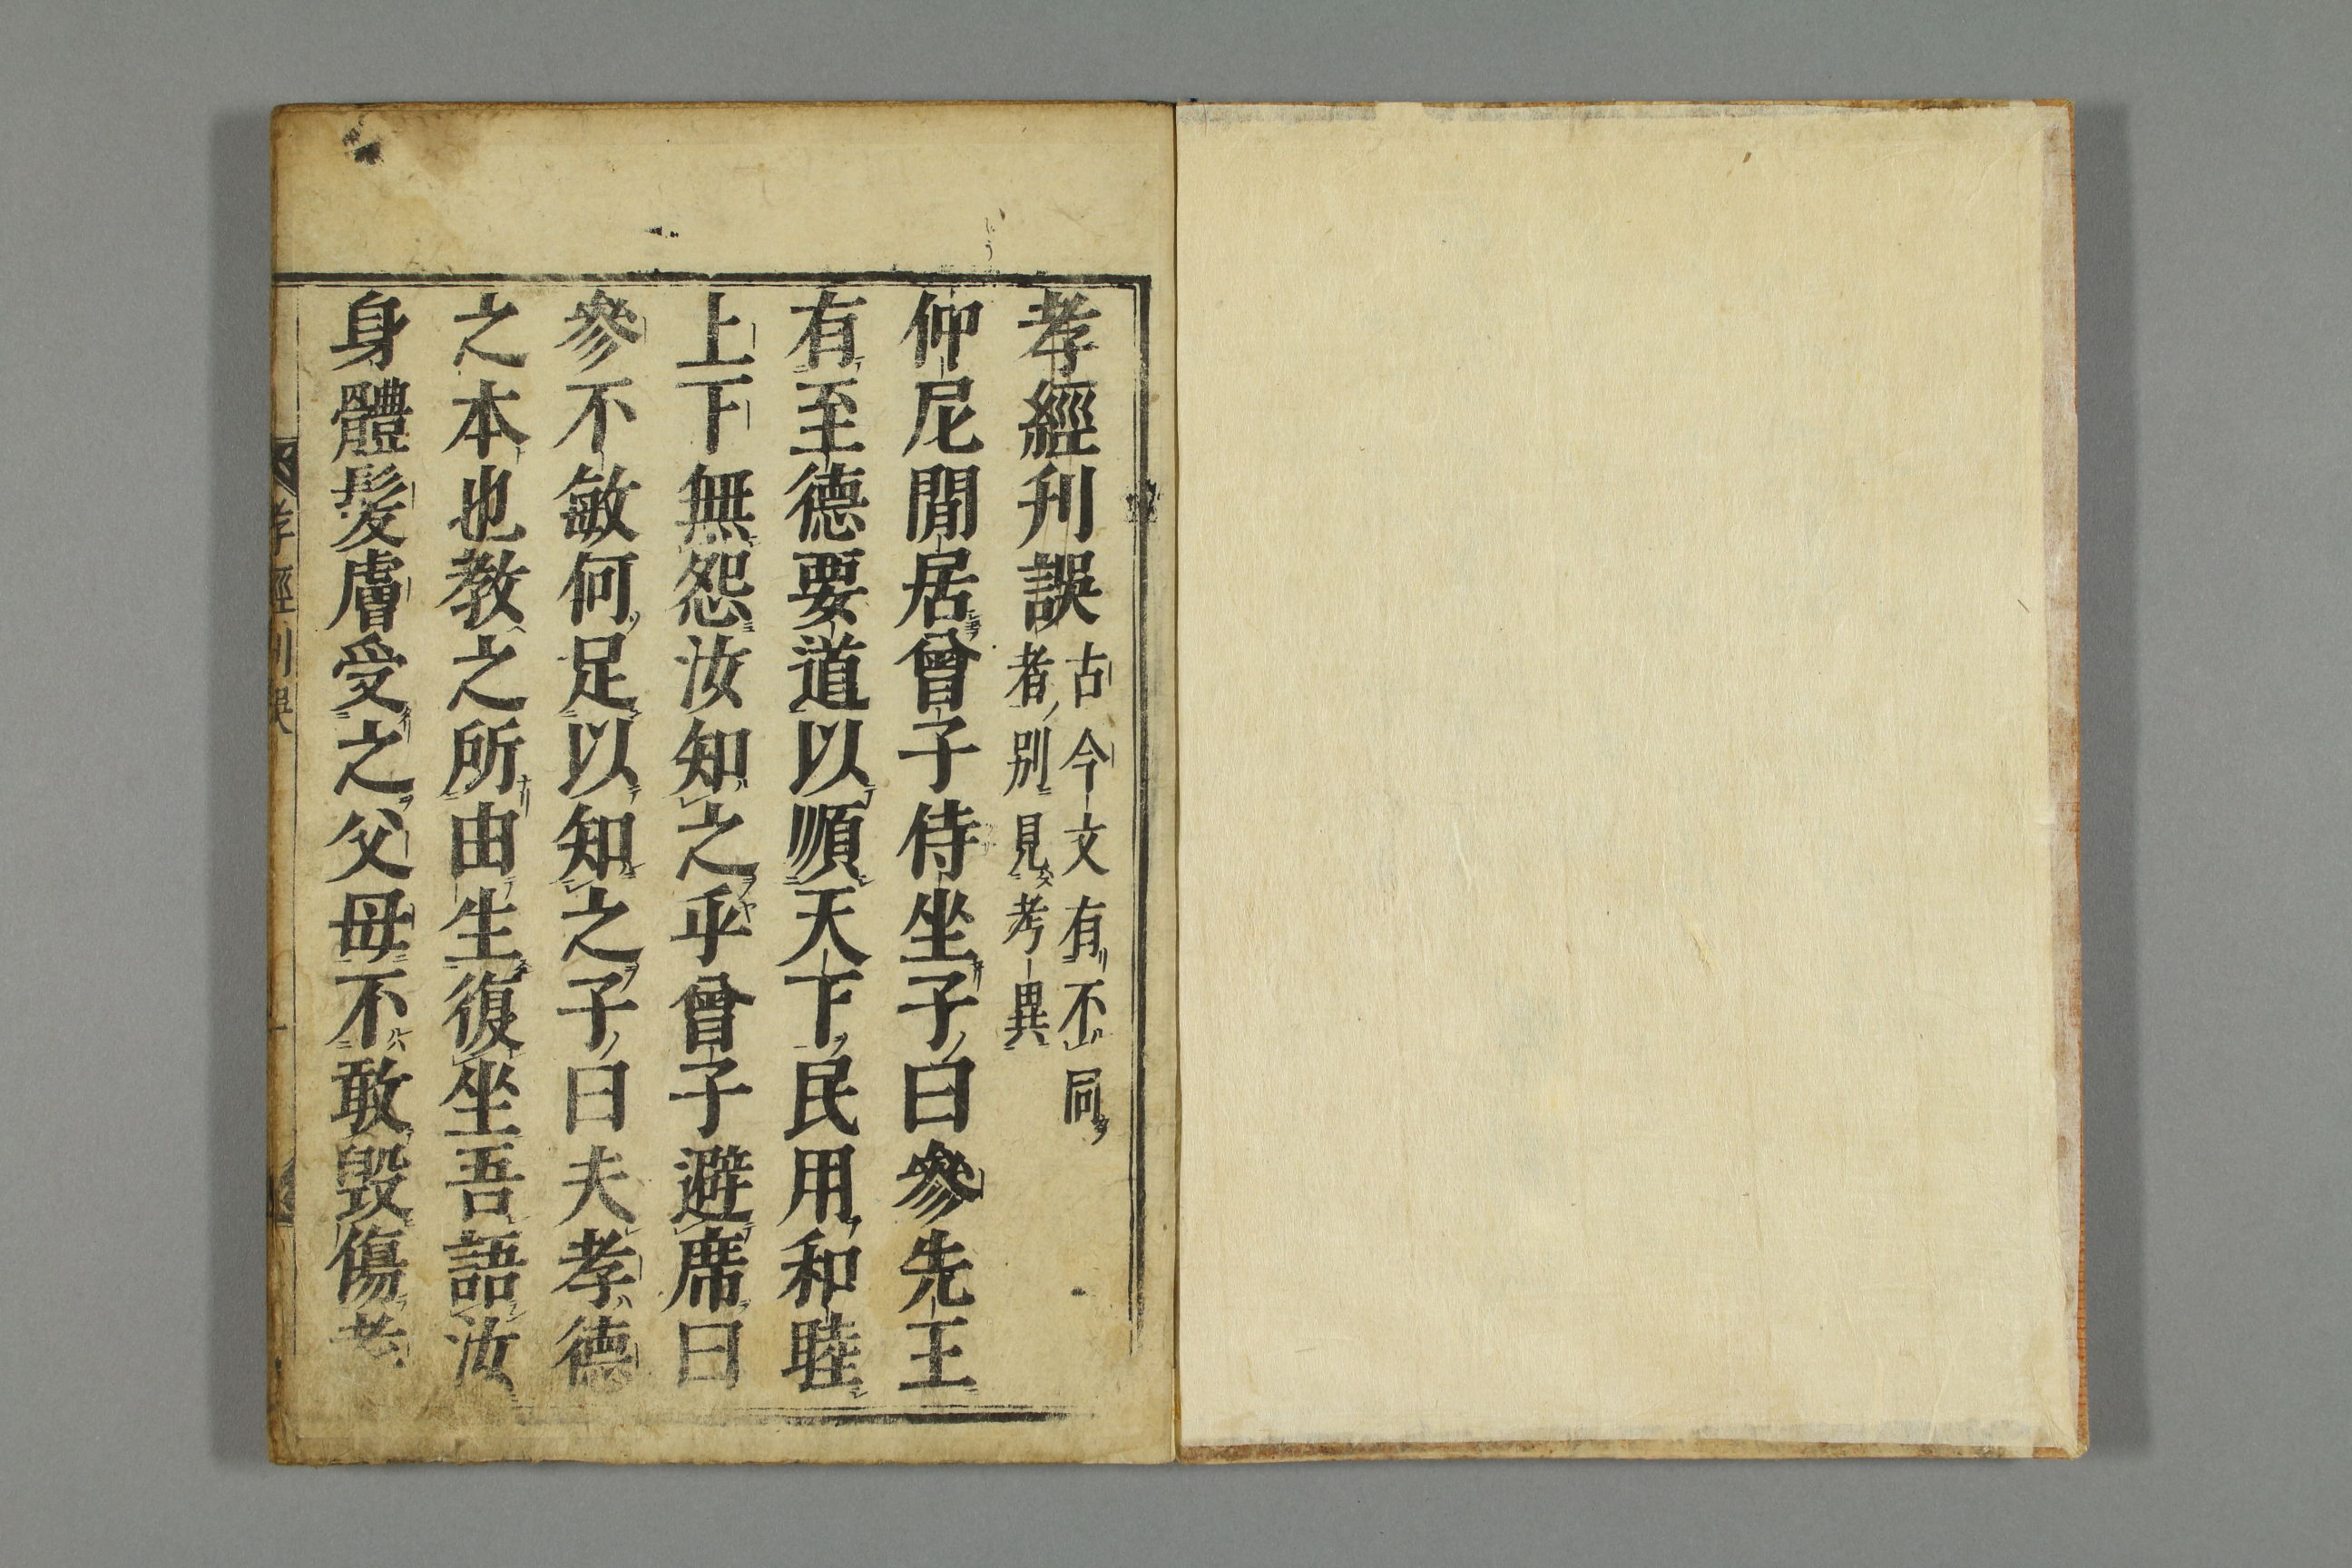 孝經刋誤 古今文有不同
者別見考異
仲尼閒居曾子侍坐子曰參先王
有至德要道以順天下民用和睦
上下無怨汝知之乎曾子避席曰
參不敏何足以知之子曰夫孝德
之本也教之所由生復坐吾語汝
身體髮膚受之父母不敢毀傷孝
孝經刋誤